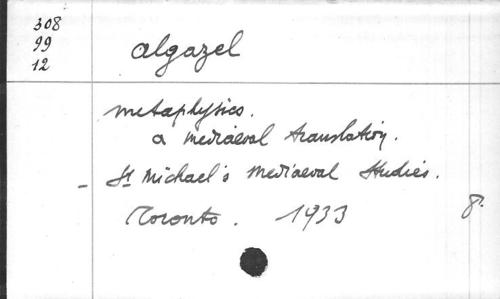 308
99
12
algazel
metaphysics.
a mediaeval translation.
- St Michael's Mediaeval Studies.
Toronto. 1933 8º